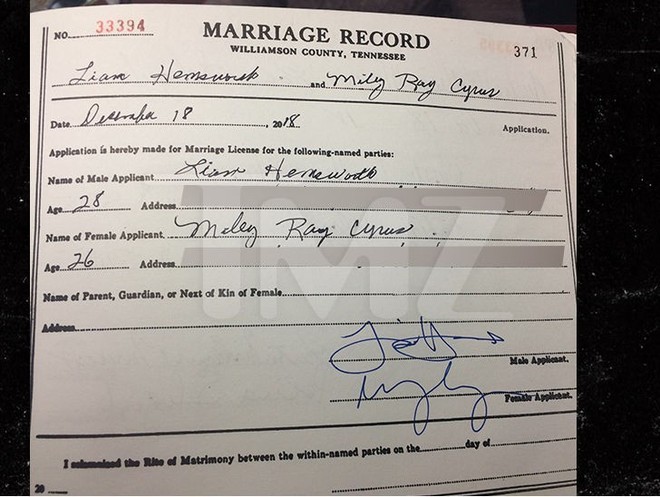 NO. 33394
MARRIAGE RECORD 371
WILLIAMSON COUNTY, TENNESSEE
Liam Hemsworth and Miley Ray Cyrus
Date December 18, 2018 Application.
Application is hereby made for Marriage License for the following-named parties:
Name of Male Applicant Liam Hemsworth
Age 28 Address
Name of Female Applicant Miley Ray Cyrus
Age 26 Address
TMZ
Name of Parent, Guardian, or Next of Kin of Female
Address
Male Applicant.
Female Applicant.
I solemnized the Rite of Matrimony between the within-named parties on the day of
20